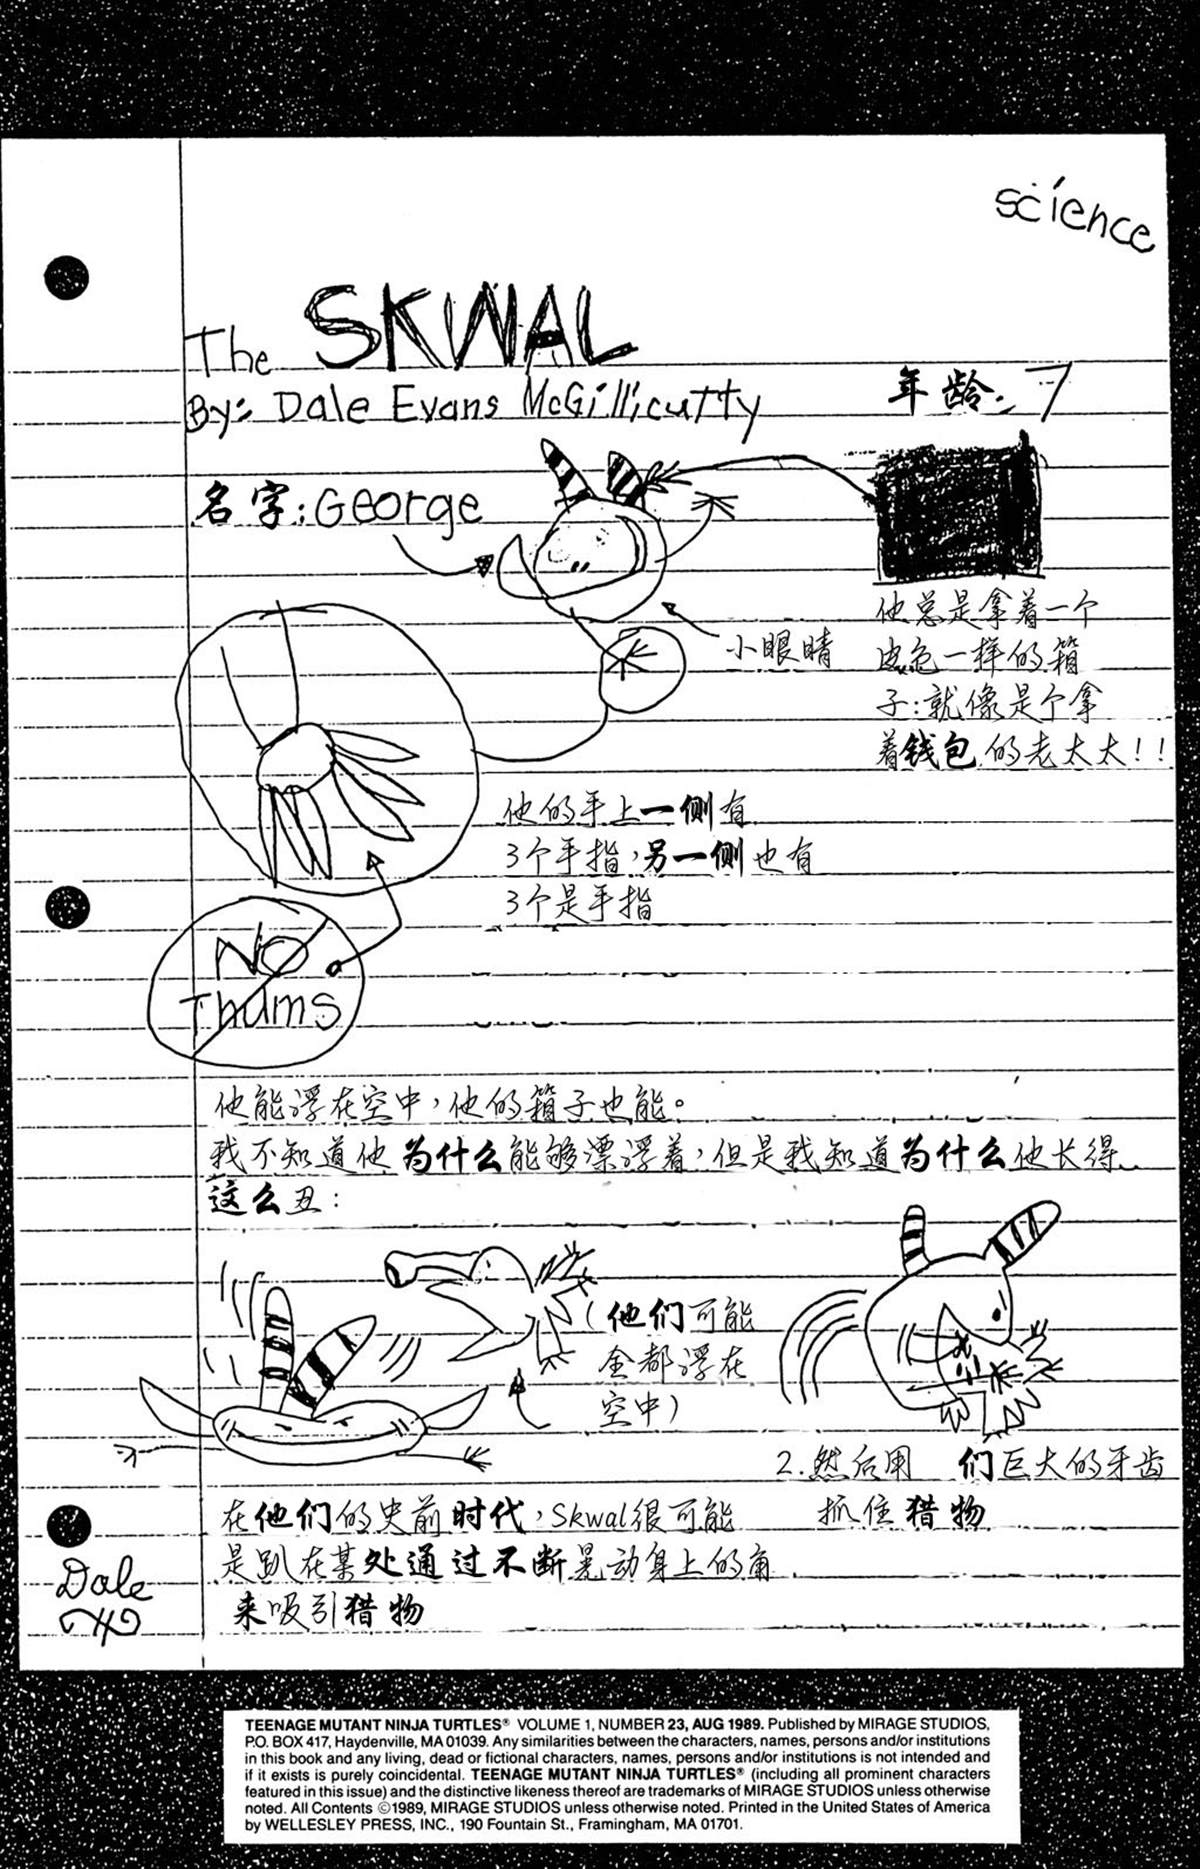 science
The SKWAL
By: Dale Evans McGillicutty
年龄: 7
名字: George
小眼睛
他总是拿着一个
皮包一样的箱
子:就像是个拿
着钱包的老太太!!
他的手上一侧有
3个手指,另一侧也有
3个是手指
NO
Thums
他能浮在空中,他的箱子也能。
我不知道他为什么能够漂浮着,但是我知道为什么他长得
这么丑:
(他们可能
全都浮在
空中)
2.然后用 们巨大的牙齿
抓住猎物
在他们的史前时代,Skwal很可能
是趴在某处通过不断晃动身上的角
来吸引猎物
Dale
TEENAGE MUTANT NINJA TURTLES® VOLUME 1, NUMBER 23, AUG 1989. Published by MIRAGE STUDIOS,
P.O. BOX 417, Haydenville, MA 01039. Any similarities between the characters, names, persons and/or institutions
in this book and any living, dead or fictional characters, names, persons and/or institutions is not intended and
if it exists is purely coincidental. TEENAGE MUTANT NINJA TURTLES® (including all prominent characters
featured in this issue) and the distinctive likeness thereof are trademarks of MIRAGE STUDIOS unless otherwise
noted. All Contents ©1989, MIRAGE STUDIOS unless otherwise noted. Printed in the United States of America
by WELLESLEY PRESS, INC., 190 Fountain St., Framingham, MA 01701.